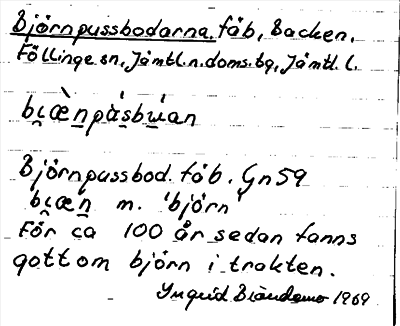 Björnpussbodarna. fäb, Backen,
Föllinge sn, Jämtl.n.doms.tg, Jämtl. l.
bi̯æ̀n̠pàs̠bu̠an
Björnpussbod. fäb. Gn59
bi̯æn̠ m. 'björn'
För ca 100 år sedan fanns
gott om björn i trakten.
Ingrid 1969